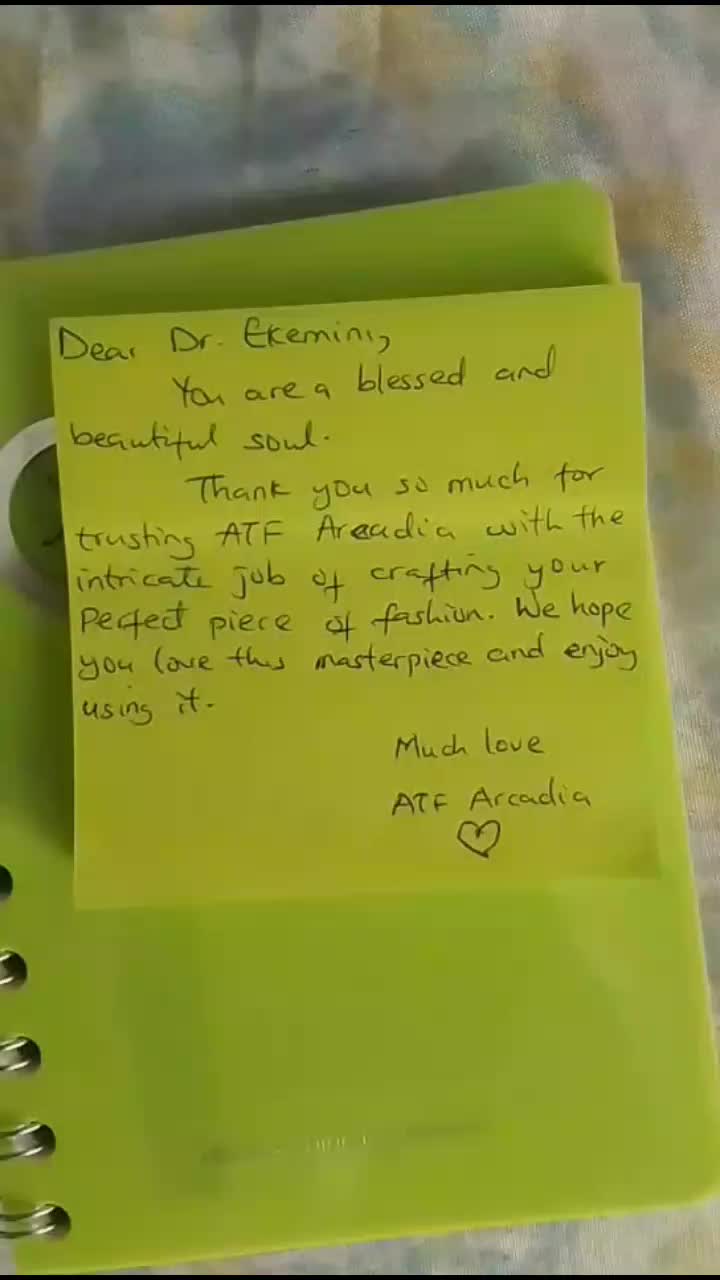 Dear Dr. Ekemini,
You are a blessed and
beautiful soul.
Thank you so much for
trusting ATF Arcadia with the
intricate job of crafting your
Perfect piece of fashion. We hope
you love this masterpiece and enjoy
using it.
Much love
ATF Arcadia